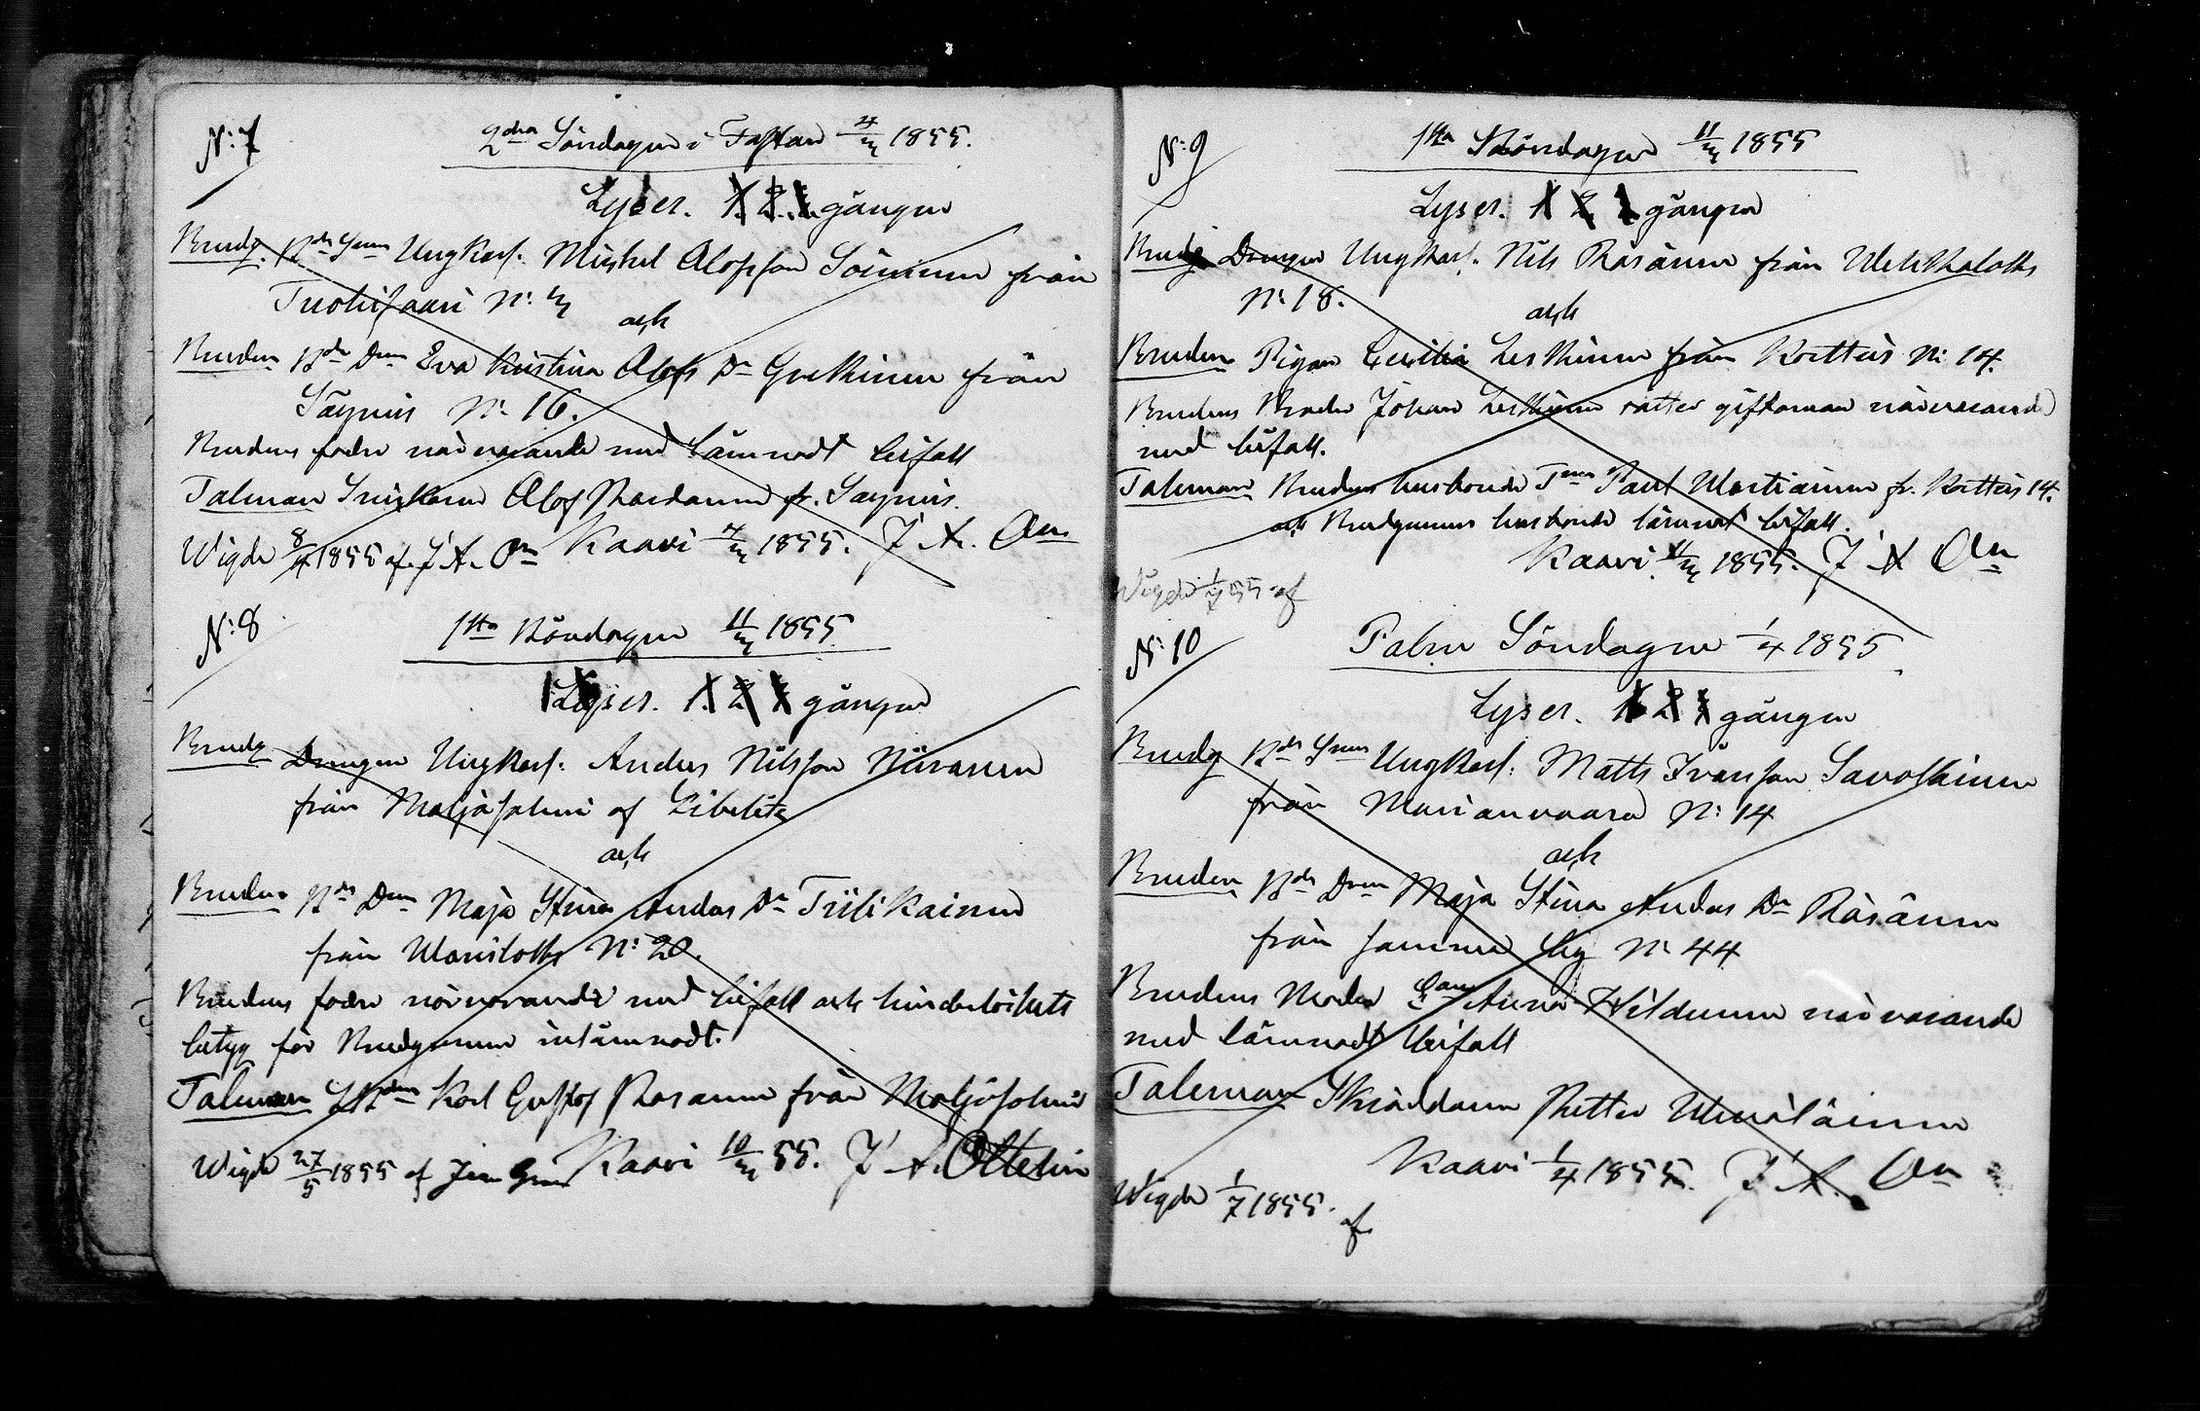 N:7
2dra Söndagen i Fastan 4/3 1855.
Lyses. 1. 2. 3. gången
Brudg. Bde Sonen Ungkarl. Michel Olofsson Soininen från
Tuohisaari N: 3
och
Bruden Bde Dren Eva Kristina Olofs Dr från
Säynis N: 16.
Brudens fader närvarande med lämnadt bifall
Talman Olof fr. Säynis.
Wigde 8/4 1855 af J. A. On Kaavi 4/3 1855. J. A. On
N:8
1sta Böndagen 11/3 1855.
Lyses. 1. 2. 3 gången
Brudg Drängen Ungkarl. Anders Nilsson
från Maljasalmi af Libelitz
och
Bruden Bde Dren Maja Stina Anders Dr Tiilikainen
från N: 20.
Brudens fader närvarande med bifall och hinderlöshets
betyg för Brudgummen inlämnadt.
Talman Karl Gustaf Räsänen från Maljasalmi
Wigde 27/5 1855 af Kaavi 10/3 55. J. A. Ottelin
N:9
1sta Böndagen 11/3 1855
Lyses. 1 2 3 gången
Brudg Drängen Ungkarl. Nils Räsänen från
N: 18.
och
Bruden Pigan Cecilia Leskinen från Kortteis N: 14.
Brudens Broder Johan Leskinen rätter giftoman närvarande
med bifall.
Talman Brudens husbonde Paul Martiainen fr. Kortteis 14.
och Brudgummens husbonde lämnat bifall.
Kaavi 11/3 1855. J A On
Wigde 1/7 55 af
N: 10
Palm Söndagen 1/4 1855
Lyses. 1 2 3 gången
Brudg Bde Sonen Ungkarl. Matts Ivarsson Savolainen
från Marianvaara N: 14
och
Bruden Bde Dren Maja Stina Anders Dr Räsänen
från samma by N: 44
Brudens Moder Anna närvarande
med lämnadt bifall
Talman Skräddaren Petter
Kaavi 1/4 1855. J. A. On
Wigde 1/7 1855. af